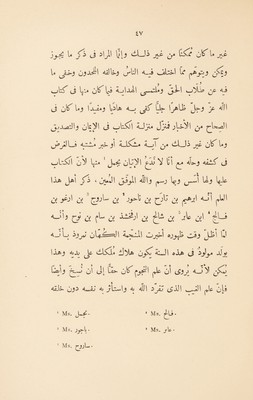 ٤٧
غير ما كان ممكنا من غير ذلك وإنّما المراد في ذكر ما يجوز
ويمكن ويتوهّم ممّا اختلف فيه الناس وخالفته الملحدون وخفى ما
فيه عن طُلّاب الحقّ وملتمسى الهداية فما كان منها فى كتاب
الله عزّ وجلّ ظاهرًا جليًّا كفى به هاديًا ومفيدًا وما كان فى
الصحاح من الأخبار فتنزّل منزلة الكتاب فى الإيمان والتصديق
وما كان غير ذلك من آية مشكلة او خبر مُشتبه فالغرض
فى كشفه وحلّه مع أنّا لا نَدَعُ الإتيان بجمل¹ منها لأنّ الكتاب
عليها ولها أُسّس وبها رسم والله الموفّق المُعين، ذكر أهل هذا
العلم أنّه ابرهيم بن تارح بن ناحور² بن ساروح³ بن ارغو بن
فالح⁴ ابن عابر⁵ بن شالح بن ارفخشذ بن سام بن نوح وأنّه
لمّا أظلّ وقت ظهوره أخبرت المنجّمة الكُهّان نمروذ بأنّه
يولد مولودٌ فى هذه السنة يكون هلاك مُلكك على يديه وهذا
يُمكن لأنّه يُروى أنّ علم النجوم كان حقًّا إلى أن نُسخ وأيضًا
فإنّ علم الغيب الذى تفرّد الله به واستأثر به نفسه دون خلقه
¹ Ms. مجمل.
² Ms. باجور.
³ Ms. ساروح.
⁴ Ms. فالح.
⁵ Ms. عابر.